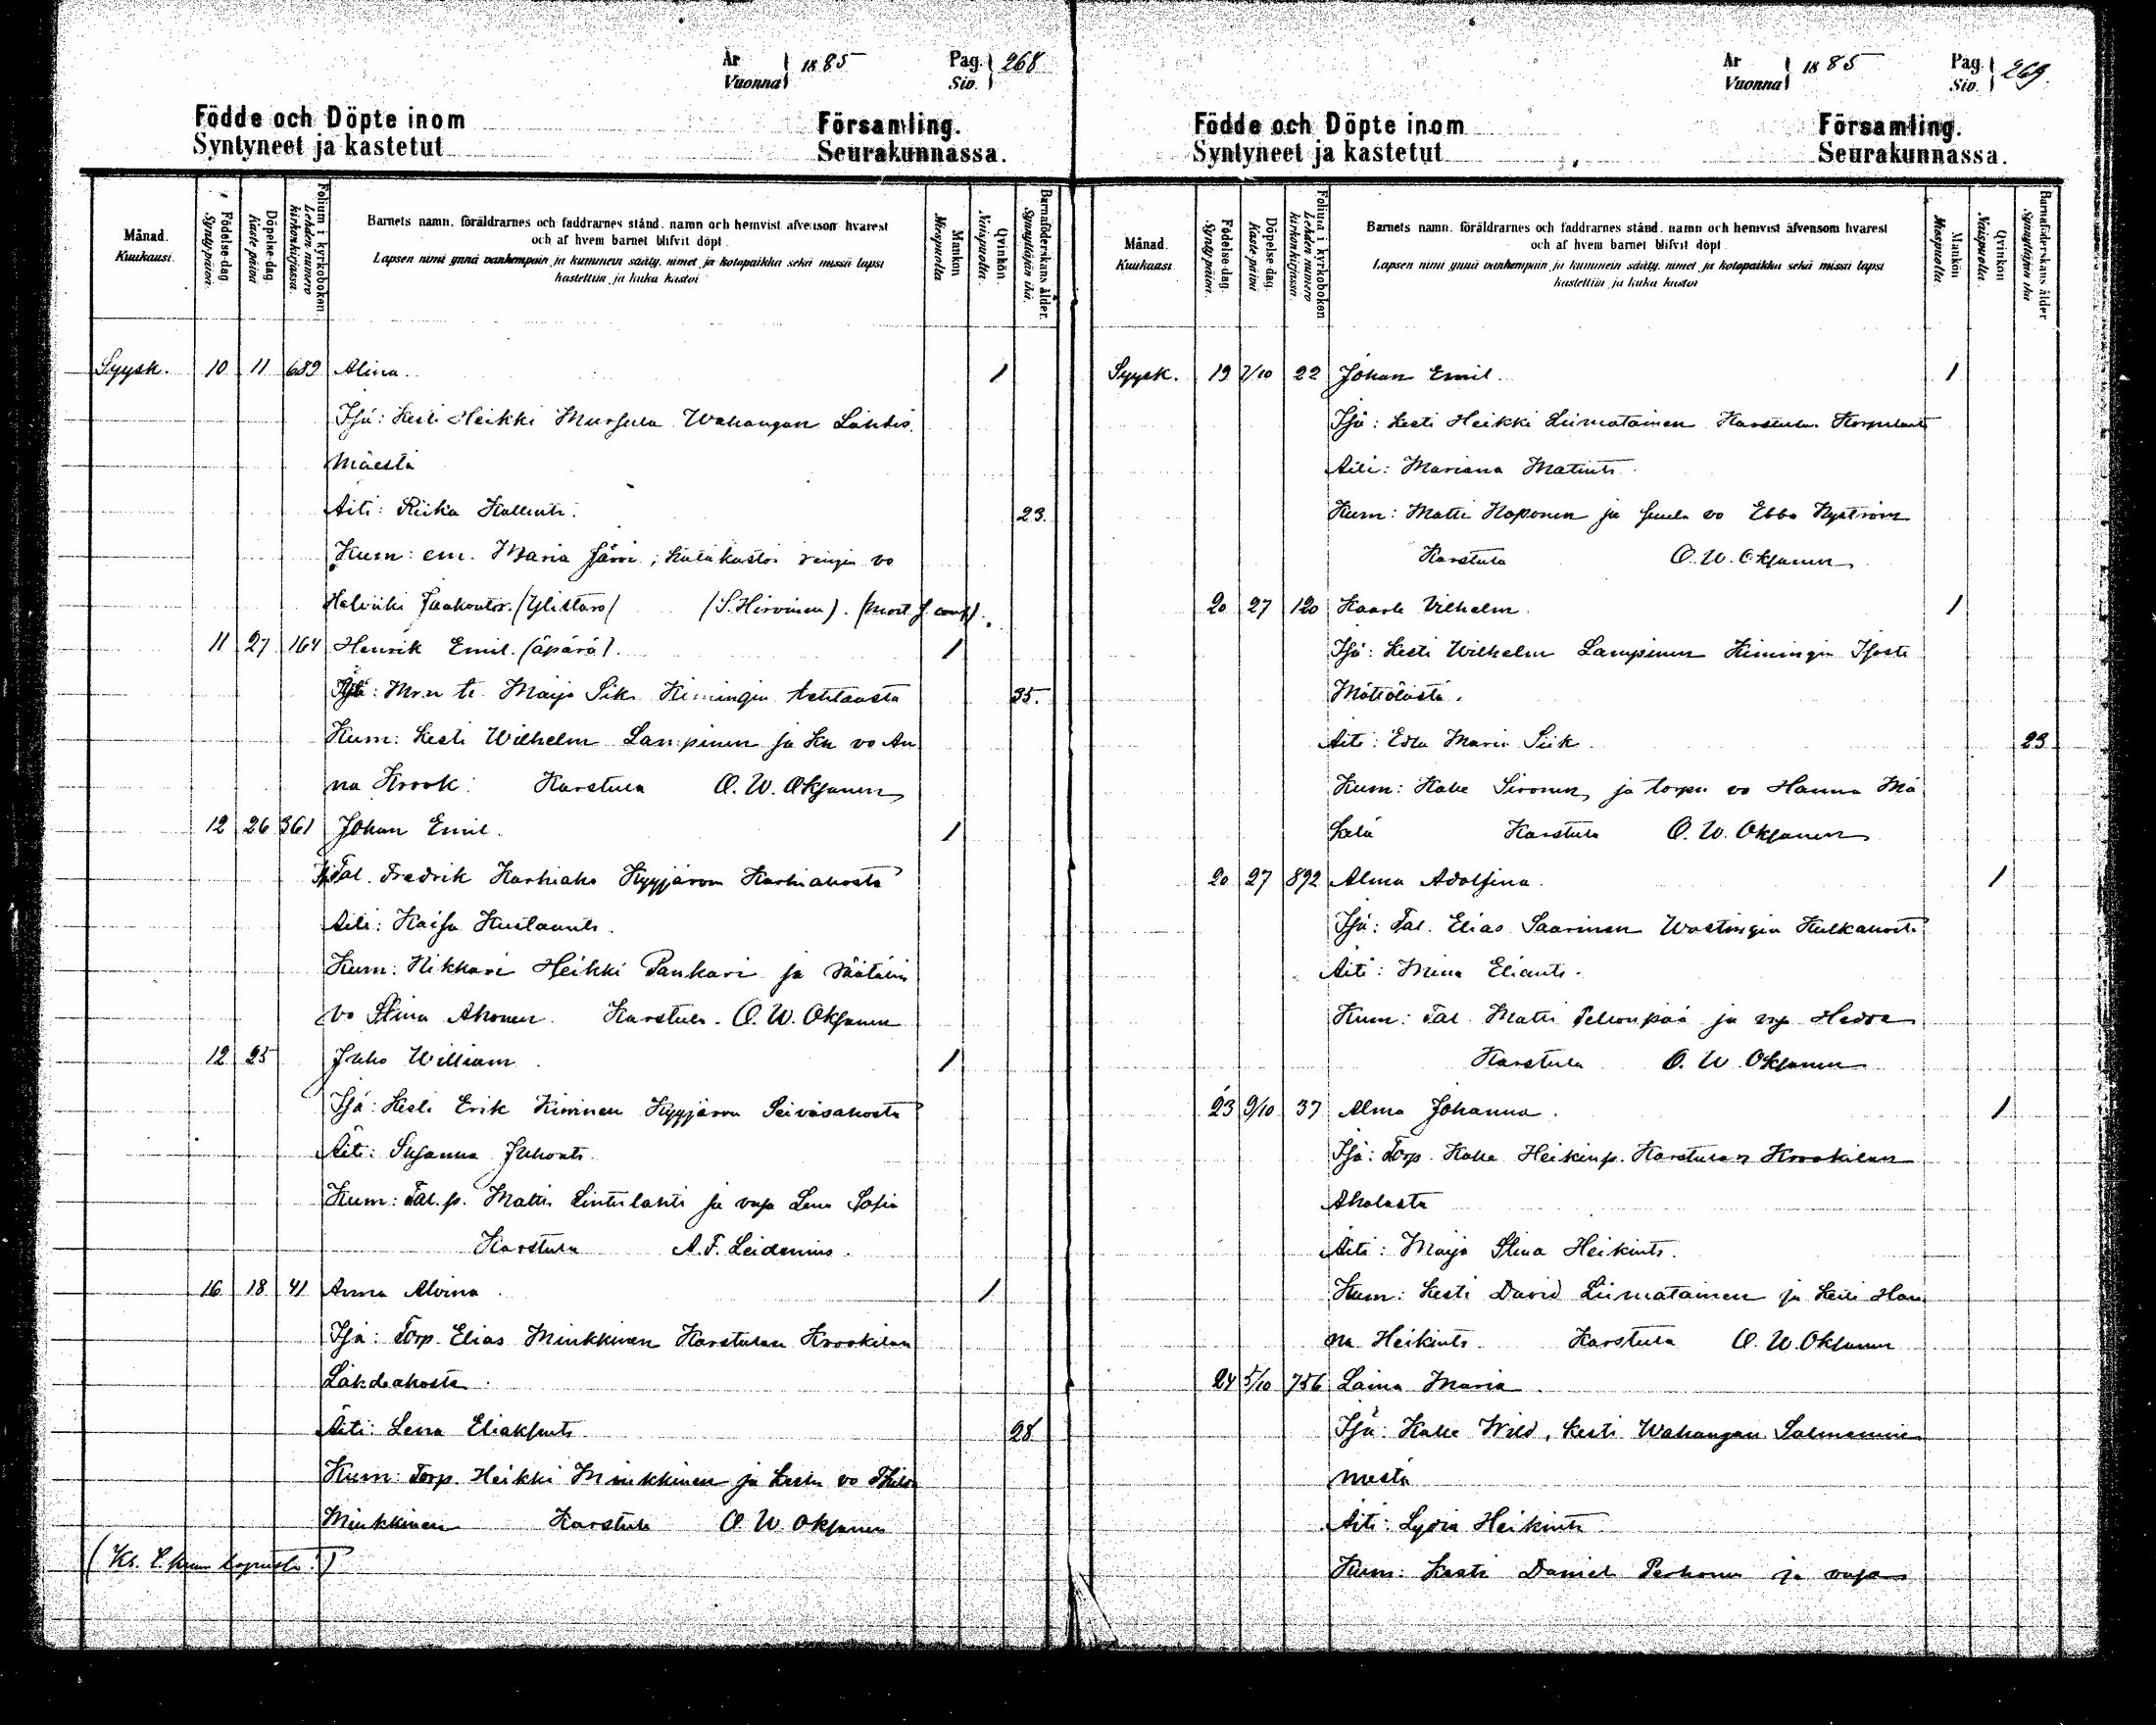 År
Vuonna 1885
Pag.
Siv. 268
Födde och Döpte inom Församling.
Syntyneet ja kastetut Seurakunnassa.
Månad. Kuukausi.
Födelse-dag. Syntypäivä.
Döpelse-dag. Kaste-päivä
Folium i kyrkoboken. Lehden numero kirkonkirjassa.
Barnets namn, föräldrarnes och faddrarnes stånd, namn och hemvist äfvensom hvarest
och af hvem barnet blifvit döpt.
Lapsen nimi ynnä vanhempain ja kummein sääty, nimet ja kotopaikka sekä missä lapsi
kastettiin ja kuka kastoi
Mankön Miespuolia
Qvinkön. Naispuolia.
Barnaföderskans ålder. Synnyttäjän ikä.
Syysk. 10 11 689 Alina. 1
Isä: Kesti Heikki Mursula Wahangan Lähdis
mäestä
Äiti: Riika Kallentr. 23.
Kum: em. Maria Järvi; hätäkastoi rengin vo
Helviiki Jaakontr. (Ylistaro) (S. Hirvinen).
11 27 164 Henrik Emil. (äpärä). 1
Äiti: Mr.n tr. Maija Siik Kimingin 35.
Kum: Kesti Wilhelm Lampinen ja Kn vo An
na Krook. Karstula O. W. Oksanen
12 26 361 Johan Emil. 1
Isä Tal. Fredrik Karhiaho Kyyjärven Karhiahosta
Äiti: Kaisa Kustaantr.
Kum: Nikkari Heikki Pankari ja räätälin
vo Stina Ahonen. Karstula. O. W. Oksanen
12 25 Juho William 1
Isä: Kesti Erik Kivinen Kyyjärven Seiväsahosta
Äiti: Susanna Juhontr.
Kum: Tal. p. Matti Lintulahti ja vmsa Lena Sofia
Karstula A. F. Leidenius.
16 18 41 Anna Alvina 1
Isä: Torp. Elias Minkkinen Karstulan Krookilan
Lähdeahosta.
Äiti: Lena Eliaksentr. 28
Kum: Torp. Heikki Minkkinen ja Kestin vo
Minkkinen Karstula O. W. Oksanen
År
Vuonna 1885
Pag.
Siv. 269.
Födde och Döpte inom Församling.
Syntyneet ja kastetut Seurakunnassa.
Månad. Kuukausi
Födelse-dag. Syntypäivä.
Döpelse-dag. Kaste-päivä
Folium i kyrkoboken Lehden numero kirkonkirjassa.
Barnets namn, föräldrarnes och faddrarnes stånd, namn och hemvist äfvensom hvarest
och af hvem barnet blifvit döpt
Lapsen nimi ynnä vanhempain ja kummein sääty, nimet ja kotopaikka sekä missä lapsi
kastettiin ja kuka kastoi
Mankön Miespuolia.
Qvinkön Naispuolia.
Barnaföderskans ålder Synnyttäjän ikä
Syysk. 19 7/10 22 Johan Emil. 1
Isä: Kesti Heikki Liimatainen Karstulan
Äiti: Mariana Matintr.
Kum: Matti Haponen ja vo Ebba Nyström
Karstula O. W. Oksanen
20 27 120 Kaarle Vilhelm. 1
Isä: Kesti Wilhelm Lampinen Kimingin
Mättölästä.
Äiti: Edla Maria Siik. 23
Kum: Kalle Sironen ja torpn vo Hanna Mä
kelä Karstula O. W. Oksanen
20 27 892 Alma Adolfina. 1
Isä: Tal. Elias Saarinen Wastingin
Äiti: Mina Eliantr.
Kum: Tal. Matti Pellonpää ja Hedda
Karstula O. W. Oksanen
23 9/10 37 Alma Johanna. 1
Isä: Torp. Kalle Heikinp. Karstulan Krookilan
Aholasta
Äiti: Maija Stina Heikintr.
Kum: Kesti David Liimatainen ja Han
na Heikintr. Karstula O. W. Oksanen
24 5/10 756 Laina Maria.
Isä: Kalle Wild, Kesti Wahangan
mestä
Äiti: Lydia Heikintr.
Kum: Kesti Daniel Perhonen ja vmsa